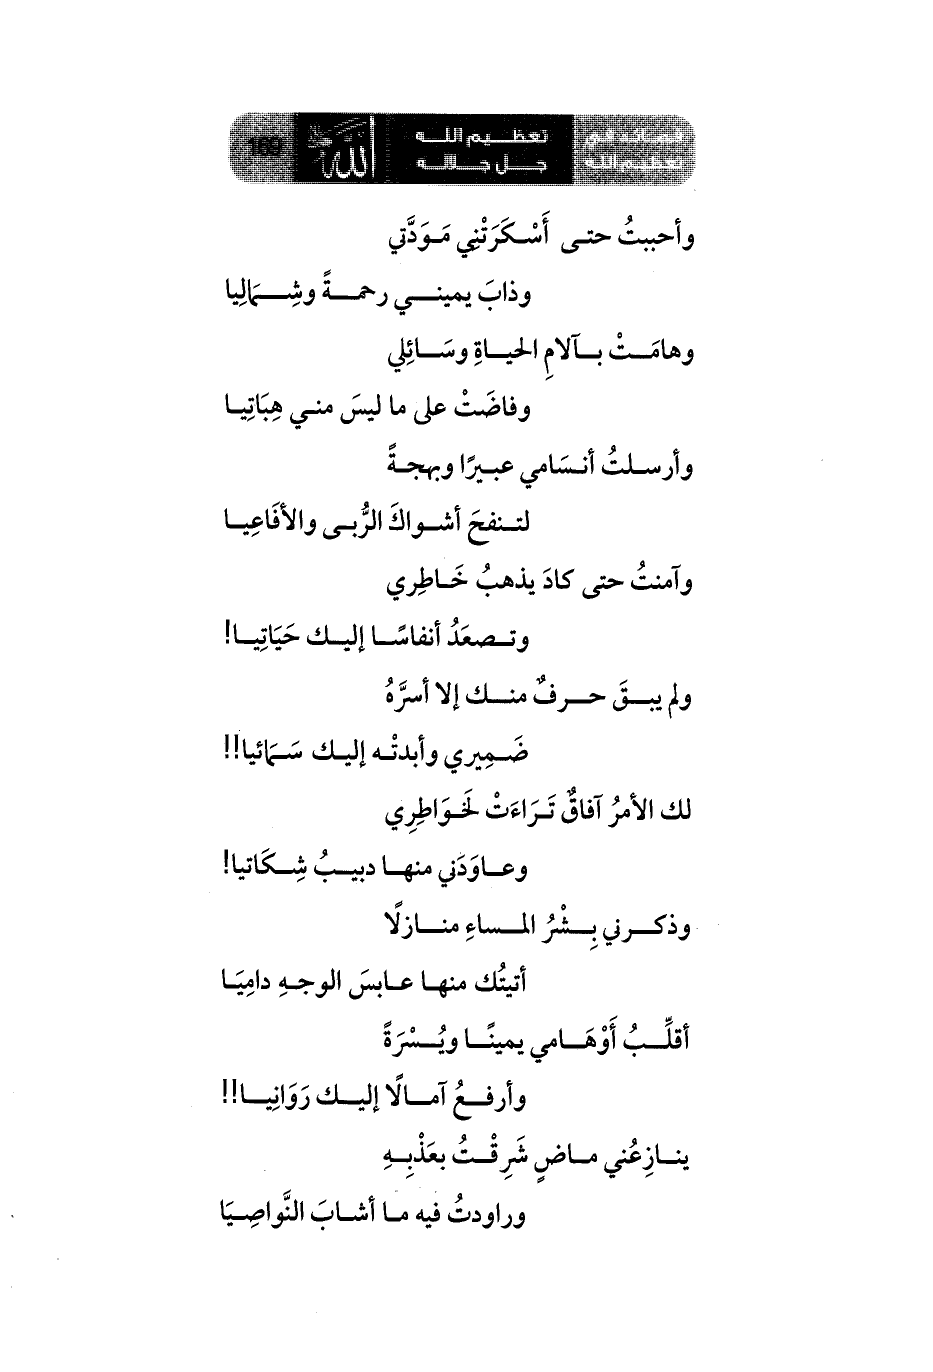 قصائد في تعظيم الله
تعظيم الله جل جلاله
الله
169
وأحببتُ حتى أَسْكَرَتْنِي مَوَدَّتي
وذابَ يميني رحمةً وشِمَالِيا
وهامَتْ بآلامِ الحياةِ وسَائِلي
وفاضَتْ على ما ليسَ مني هِبَاتِيا
وأرسلتُ أنسَامي عبيرًا وبهجةً
لتنفحَ أشواكَ الرُّبى والأفَاعِيا
وآمنتُ حتى كادَ يذهبُ خَاطِري
وتصعَدُ أنفاسًا إليك حَيَاتِيا!
ولم يبقَ حرفٌ منك إلا أسرَّهُ
ضَمِيري وأبدتْه إليك سَمَائيا!!
لك الأمرُ آفاقٌ تَرَاءَتْ لخَوَاطِرِي
وعاوَدَني منها دبيبُ شِكَاتيا!
وذكرني بِشْرُ المساءِ منازلًا
أتيتُك منها عابسَ الوجهِ دامِيَا
أقلِّبُ أَوْهَامي يمينًا ويُسْرَةً
وأرفعُ آمالًا إليك رَوَانِيا!!
ينازِعُني ماضٍ شَرِقْتُ بعَذْبِهِ
وراودتُ فيه ما أشابَ النَّواصِيَا